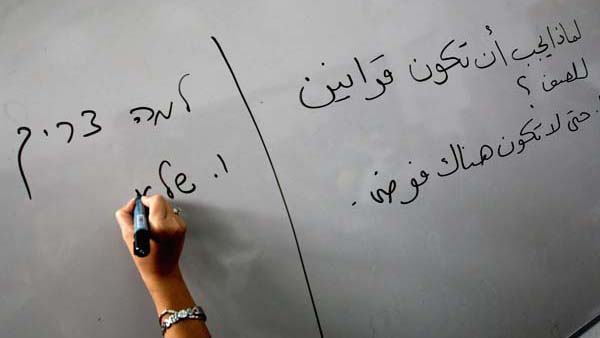 لماذا يجب أن تكون قوانين
للصف ؟
1. حتى لا تكون هناك فوضى.
למה צריך
1. שלא